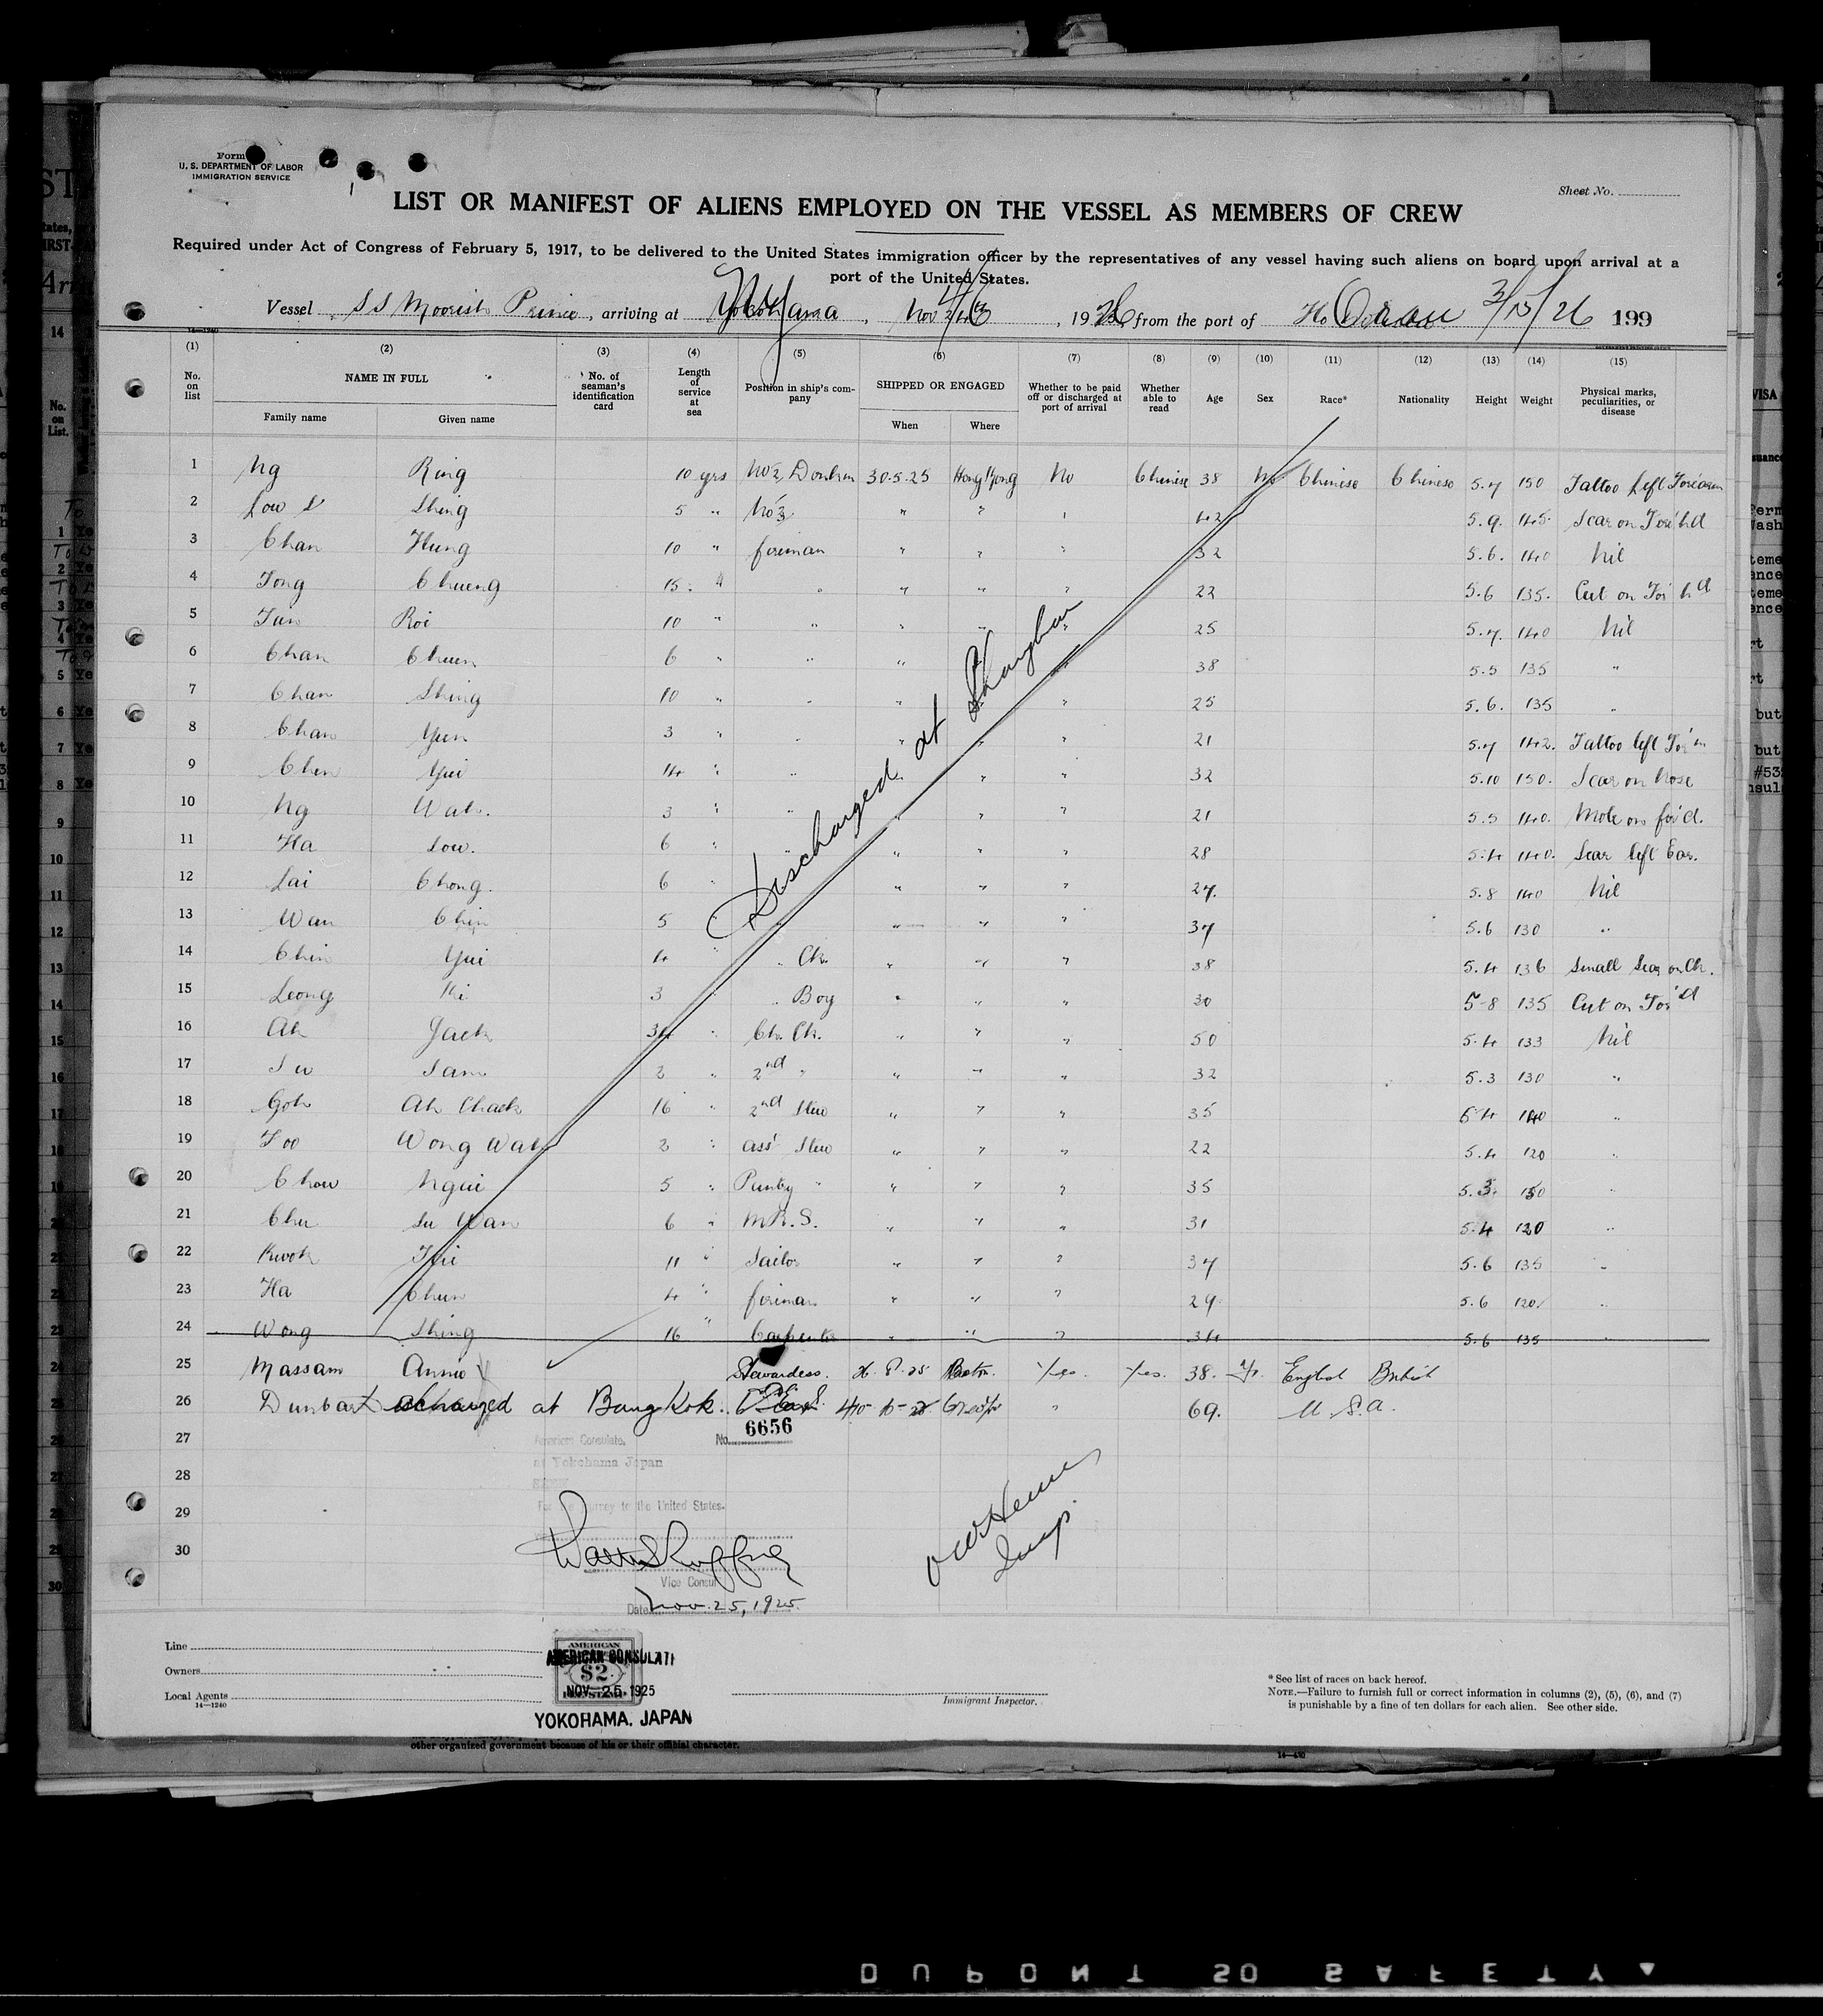 Form
U. S. DEPARTMENT OF LABOR
IMMIGRATION SERVICE
Sheet No.
LIST OR MANIFEST OF ALIENS EMPLOYED ON THE VESSEL AS MEMBERS OF CREW
Required under Act of Congress of February 5, 1917, to be delivered to the United States immigration officer by the representatives of any vessel having such aliens on board upon arrival at a
port of the United States.
Vessel SS Moorish Prince, arriving at Yokohama, Nov, 1926, from the port of Oran 3/15/26 199
(1) (2) (3) (4) (5) (6) (7) (8) (9) (10) (11) (12) (13) (14) (15)
No. on list NAME IN FULL Family name Given name No. of seaman's identification card Length of service at sea Position in ship's company SHIPPED OR ENGAGED When Where Whether to be paid off or discharged at port of arrival Whether able to read Age Sex Race* Nationality Height Weight Physical marks, peculiarities, or disease
1 Ng Ring 10 yrs No 2 Donkm 30.5.25 Hong Kong No Chinese 38 M Chinese Chinese 5.7 150 Tattoo Left Forearm
2 Low Shing 5 " No 3 " " 42 5.9. 145. Scar on Fore'hd
3 Chan Hung 10 " fireman " " " 32 5.6. 140 Nil
4 Tong Chueng 15 " " " " " 22 5.6 135. Cut on For'hd
5 Roi 10 " " " " " 25 5.7. 140 Nil
6 Chan Chuen 6 " " " " 38 5.5 135 "
7 Chan Shing 10 " " " " 25 5.6. 135 "
8 Chan Yun 3 " " " " " 21 5.7 142. Tattoo left For'm
9 Chen Yui 14 " " " " " 32 5.10 150. Scar on Nose
10 Ng Wah. 3 " " " " 21 5.5 140. Mole on for'd.
11 Ha Low. 6 " " " " 28 5.4 140. Scar left Ear.
12 Lai Chong. 6 " " " " 27. 5.8 140 Nil
13 Wan Chin 5 " " " 37 5.6 130 "
14 Chin Yui 4 " " Ck. " " " 38 5.4 136 Small Scar on Ch.
15 Leong Ki 3 " " Boy " " " 30 5-8 135 Cut on For'd
16 Ah Jack 34 " Ch. Ck. " " " 50 5.4 133 Nil
17 Su Sam 2 " 2nd " " " " 32 5.3 130 "
18 Goh Ah Chack 16 " 2nd Stew " " " 35 5.4 140 "
19 Foo Wong Wah 2 " ass' Stew " " " 22 5.4 120 "
20 Chow Ngai 5 " Pantry " " " " 35 5.3 130 "
21 Chu Su Wan 6 " M.R.S. " " " 31 5.4 120 "
22 Kwok 11 " Sailor " " " 37 5.6 135 "
23 Ha Chun 4 " fireman " " " 29. 5.6 120 "
24 Wong Shing 16 " Carpenter " " " 34 5.6 135 "
Discharged at Shanghai
25 Massam Annie Stewardess. Boston. Yes. Yes. 38. English British
26 Dunbar discharged at Bangkok. " 69. U.S.A.
27
28
29
30
No. 6656
American Consulate.
at Yokohama Japan
For the journey to the United States.
Vice Consul
Date Nov. 25, 1925.
Insp.
Line
Owners
Local Agents
14—1240
AMERICAN
$2
AMERICAN CONSULATE
NOV. 25 1925
YOKOHAMA, JAPAN
Immigrant Inspector.
* See list of races on back hereof.
NOTE.—Failure to furnish full or correct information in columns (2), (5), (6), and (7)
is punishable by a fine of ten dollars for each alien. See other side.
other organized government because of his or their official character.
DUPONT SAFETY